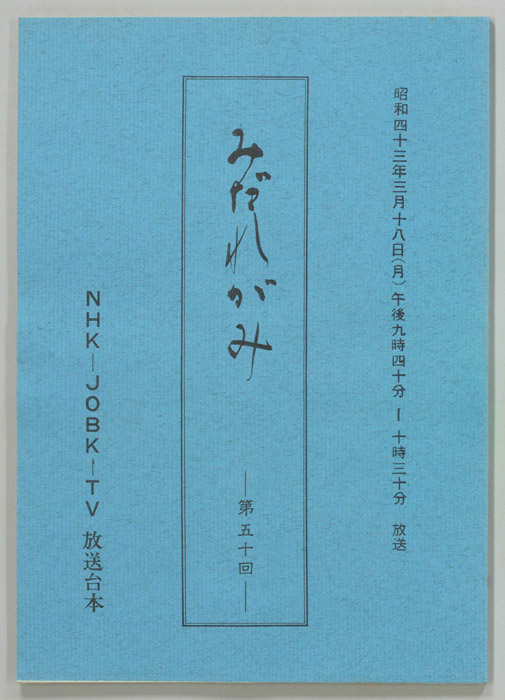 昭和四十三年三月十八日(月)午後九時四十分ー十時三十分 放送
みだれがみ
―第五十回―
NHK―JOBK―TV 放送台本